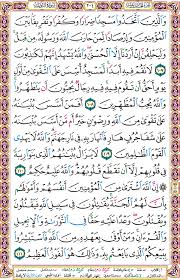 وَالَّذِينَ اتَّخَذُوا مَسْجِدًا ضِرَارًا وَكُفْرًا وَتَفْرِيقًا بَيْنَ
الْمُؤْمِنِينَ وَإِرْصَادًا لِّمَنْ حَارَبَ اللَّهَ وَرَسُولَهُ مِن قَبْلُ
وَلَيَحْلِفُنَّ إِنْ أَرَدْنَا إِلَّا الْحُسْنَىٰ وَاللَّهُ يَشْهَدُ إِنَّهُمْ لَكَاذِبُونَ
١٠٧ لَا تَقُمْ فِيهِ أَبَدًا لَّمَسْجِدٌ أُسِّسَ عَلَى التَّقْوَىٰ مِنْ أَوَّلِ
يَوْمٍ أَحَقُّ أَن تَقُومَ فِيهِ فِيهِ رِجَالٌ يُحِبُّونَ أَن يَتَطَهَّرُوا
وَاللَّهُ يُحِبُّ الْمُطَّهِّرِينَ ١٠٨ أَفَمَنْ أَسَّسَ بُنْيَانَهُ
عَلَىٰ تَقْوَىٰ مِنَ اللَّهِ وَرِضْوَانٍ خَيْرٌ أَم مَّنْ أَسَّسَ بُنْيَانَهُ
عَلَىٰ شَفَا جُرُفٍ هَارٍ فَانْهَارَ بِهِ فِي نَارِ جَهَنَّمَ وَاللَّهُ لَا يَهْدِي
الْقَوْمَ الظَّالِمِينَ ١٠٩ لَا يَزَالُ بُنْيَانُهُمُ الَّذِي بَنَوْا رِيبَةً
فِي قُلُوبِهِمْ إِلَّا أَن تَقَطَّعَ قُلُوبُهُمْ وَاللَّهُ عَلِيمٌ حَكِيمٌ ١١٠
إِنَّ اللَّهَ اشْتَرَىٰ مِنَ الْمُؤْمِنِينَ أَنفُسَهُمْ وَأَمْوَالَهُم
بِأَنَّ لَهُمُ الْجَنَّةَ يُقَاتِلُونَ فِي سَبِيلِ اللَّهِ فَيَقْتُلُونَ
وَيُقْتَلُونَ وَعْدًا عَلَيْهِ حَقًّا فِي التَّوْرَاةِ وَالْإِنجِيلِ
وَالْقُرْآنِ وَمَنْ أَوْفَىٰ بِعَهْدِهِ مِنَ اللَّهِ فَاسْتَبْشِرُوا
بِبَيْعِكُمُ الَّذِي بَايَعْتُم بِهِ وَذَٰلِكَ هُوَ الْفَوْزُ الْعَظِيمُ ١١١